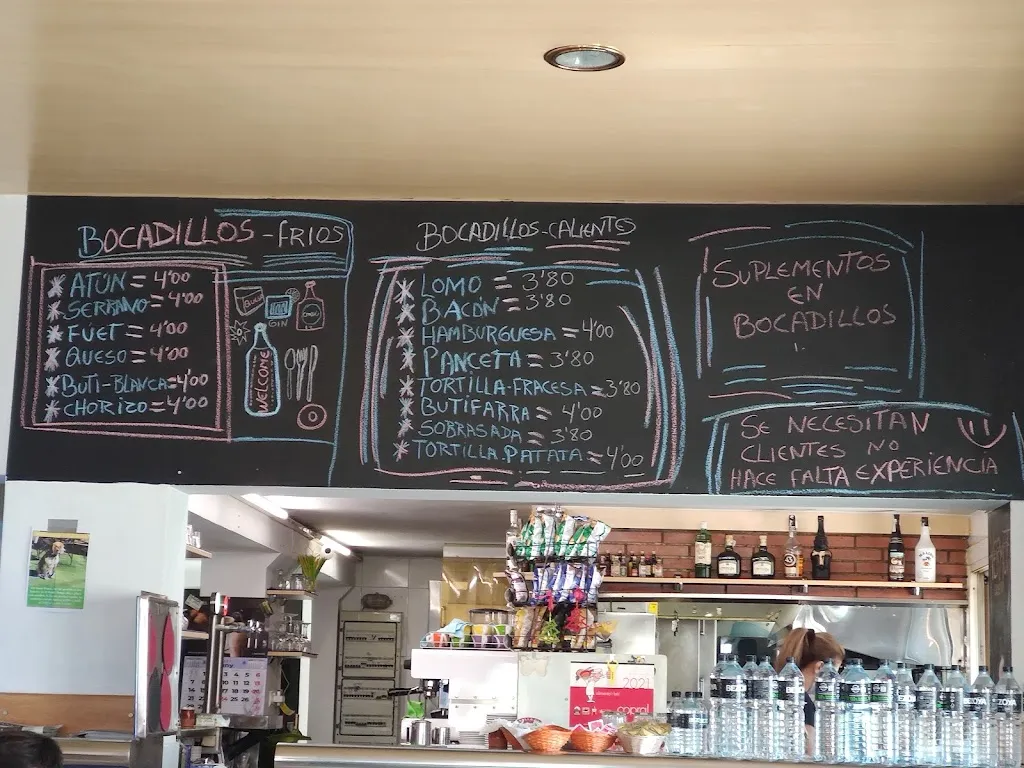 BOCADILLOS-FRIOS
ATÚN = 4'00
SERRANO = 4'00
FUET = 4'00
QUESO = 4'00
BUTI-BLANCA = 4'00
CHORIZO = 4'00
GIN
WELCOME
BOCADILLOS-CALIENTES
LOMO = 3'80
BACÓN = 3'80
HAMBURGUESA = 4'00
PANCETA = 3'80
TORTILLA-FRACESA = 3'80
BUTIFARRA = 4'00
SOBRASADA = 3'80
TORTILLA.PATATA = 4'00
SUPLEMENTOS
EN
BOCADILLOS
SE NECESITAN
CLIENTES NO
HACE FALTA EXPERIENCIA
2021
BEZOYA